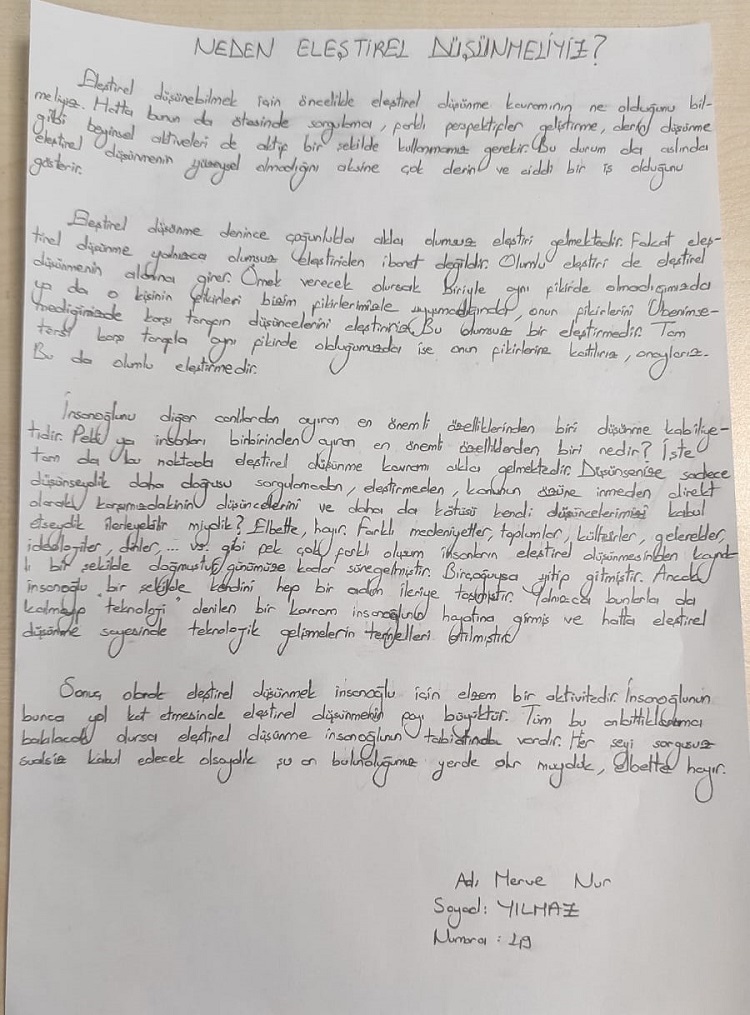 NEDEN ELEŞTİREL DÜŞÜNMELİYİZ?
Eleştirel düşünebilmek için öncelikle eleştirel düşünme kavramının ne olduğunu bil-
meliyiz. Hatta bunun da ötesinde sorgulama, farklı perspektifler geliştirme, derin düşünme
gibi beyinsel aktiveleri de aktif bir şekilde kullanmamız gerekir. Bu durum da aslında
eleştirel düşünmenin yüzeysel olmadığını aksine çok derin ve ciddi bir iş olduğunu
gösterir.
Eleştirel düşünme denince çoğunlukla akla olumsuz eleştiri gelmektedir. Fakat eleş-
tirel düşünme yalnızca olumsuz eleştiriden ibaret değildir. Olumlu eleştiri de eleştirel
düşünmenin altına girer. Örnek verecek olursak biriyle aynı fikirde olmadığımızda
ya da o kişinin fikirleri bizim fikirlerimizle uyuşmadığında, onun fikirlerini benimse-
mediğimizde karşı tarafın düşüncelerini eleştiririz. Bu olumsuz bir eleştirmedir. Tam
tersi karşı tarafla aynı fikirde olduğumuzda ise onun fikirlerine katılırız, onaylarız.
Bu da olumlu eleştirmedir.
İnsanoğlunu diğer canlılardan ayıran en önemli özelliklerinden biri düşünme kabiliye-
tidir. Peki ya insanları birbirinden ayıran en önemli özelliklerden biri nedir? İşte
tam da bu noktada eleştirel düşünme kavramı akla gelmektedir. Düşünsenize sadece
düşünseydik daha doğrusu sorgulamadan, eleştirmeden, konunun özüne inmeden direkt
olarak karşımızdakinin düşüncelerini ve daha da kötüsü kendi düşüncelerimizi kabul
etseydik ilerleyebilir miydik? Elbette, hayır. Farklı medeniyetler, toplumlar, kültürler, gelenekler,
ideolojiler, dinler, ... vs. gibi pek çok farklı oluşum insanların eleştirel düşünmesinden kaynak-
lı bir şekilde doğmuştur, günümüze kadar süregelmiştir. Birçoğuysa yitip gitmiştir. Ancak
insanoğlu bir şekilde kendini hep bir adım ileriye taşımıştır. Yalnızca bunlarla da
kalmayıp "teknoloji" denilen bir kavram insanoğlunun hayatına girmiş ve hatta eleştirel
düşünme sayesinde teknolojik gelişmelerin temelleri atılmıştır.
Sonuç olarak eleştirel düşünmek insanoğlu için elzem bir aktivitedir. İnsanoğlunun
bunca yol kat etmesinde eleştirel düşünmenin payı büyüktür. Tüm bu anlattıklarıma
bakılacak olursa eleştirel düşünme insanoğlunun tabiatında vardır. Her şeyi sorgusuz
sualsiz kabul edecek olsaydık şu an bulunduğumuz yerde olur muyduk, Elbette hayır.
Adı Merve Nur
Soyadı: YILMAZ
Numara: 29